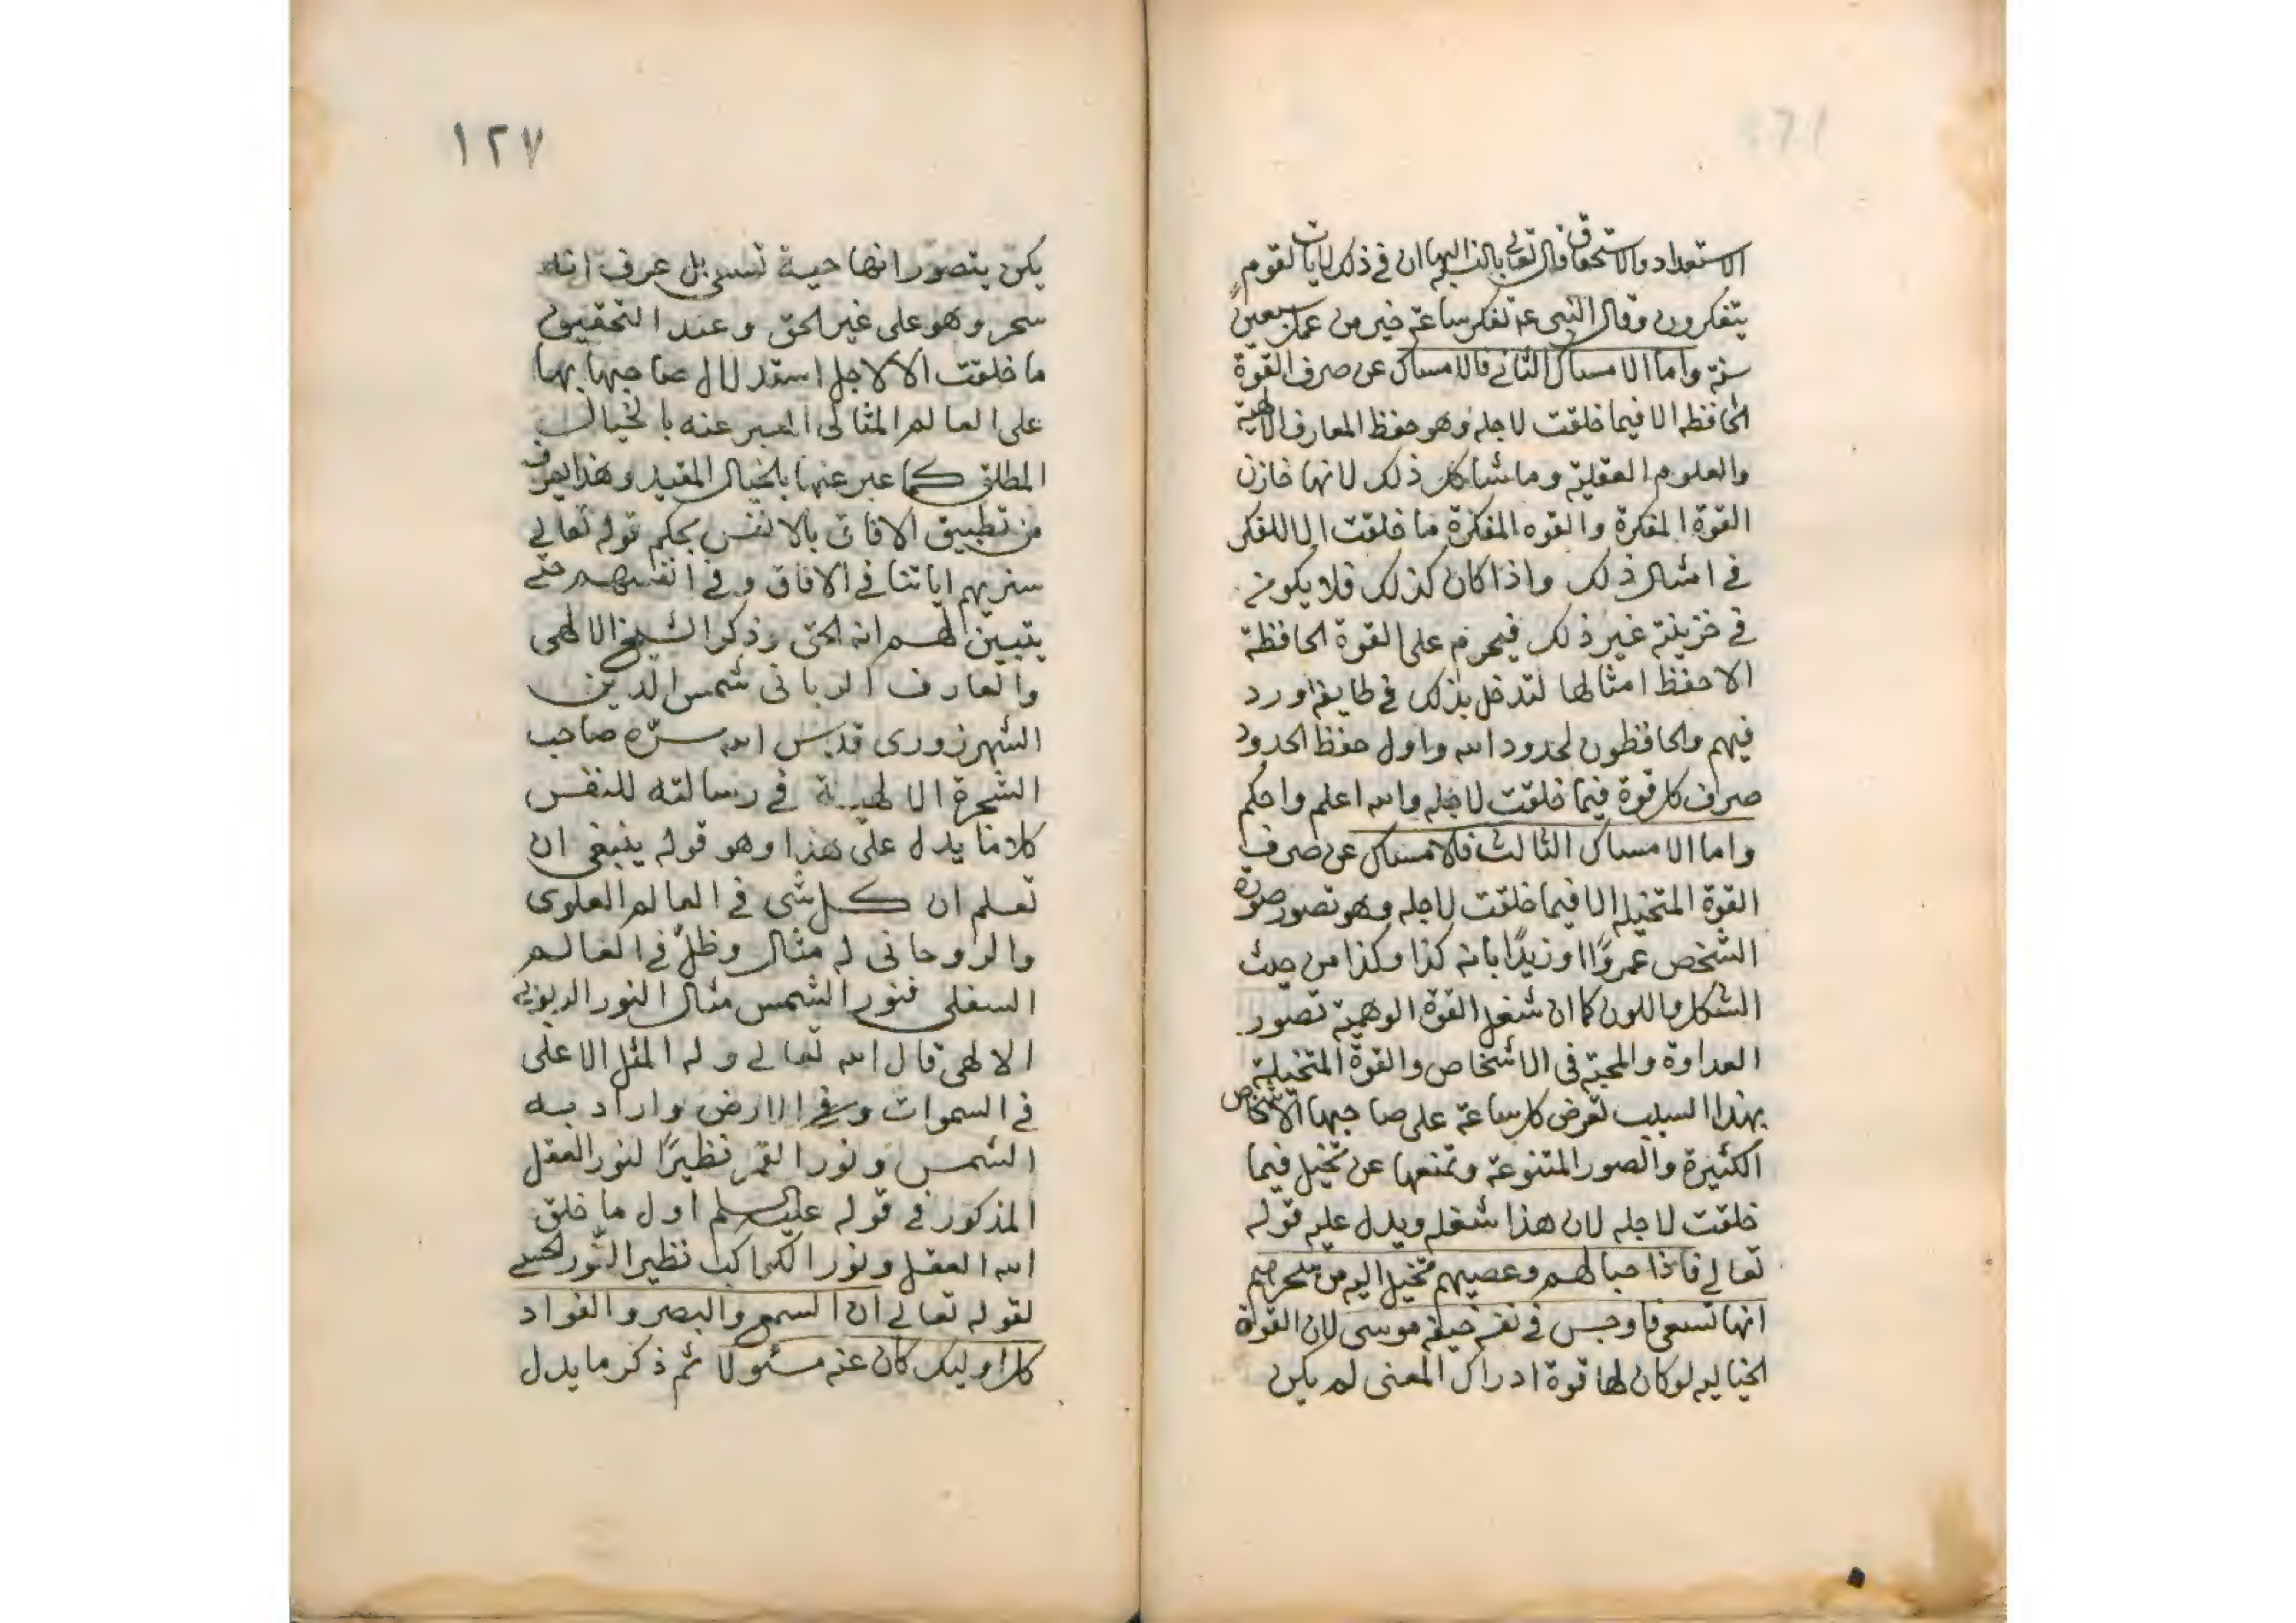 الاستعداد والاستحقاق قال تعالى بالنسبة اليها ان في ذلك لايات لقوم
يتفكرون وقال النبي عم تفكر ساعة خير من عمل سبعين
سنة واما الامساك الثاني فالامساك عن صرف القوة
الحافظه الا فيما خلقت لاجله وهو حفظ المعارف الالهية
والعلوم العقلية وما شاكل ذلك لانها خازن
القوة المفكرة والقوه المفكرة ما خلقت الا للفكر
في امثال ذلك واذا كان كذلك فلا يكون
في خزينة غير ذلك فيحرم على القوة الحافظة
الا حفظ امثالها لتدخل بذلك في طايفة ورد
فيهم والحافظون لحدود الله واول حفظ الحدود
صرف كل قوة فيما خلقت لاجله والله اعلم واحكم
واما الامساك الثالث فالامساك عن صرف
القوة المتخيله الا فيما خلقت لاجله وهو تصور صورة
الشخص عمروًا او زيدًا بانه كذا وكذا من حيث
الشكل واللون كما ان شغل القوة الوهمية تصور
العداوة والمحبة في الاشخاص والقوة المتخيلة
بهذا السبب تعرض كل ساعة على صاحبها الاشخاص
الكثيرة والصور المتنوعة وتمنعها عن تخيل فيما
خلقت لاجله لان هذا شغله ويدل عليه قوله
تعالى فاذا حبالهم وعصيهم تخيل اليه من سحرهم
انها تسعى فاوجس في نفسه خيفة موسى لان القوة
الخياليه لو كان لها قوة ادراك المعنى لم يكن
١٢٧
يكن يتصور انها حية تسعى بل عرف انه
سحر وهو على غير الحق وعند التحقيق
ما خلقت الا لاجل استدلال صاحبها بها
على العالم المثالى المعبر عنه بالخيال
المطلق كما عبر عنها بالخيال المقيد وهذا يعرف
من تطبيق الافاق بالانفس بحكم قوله تعالى
سنريهم اياتنا في الافاق وفي انفسهم حتى
يتبين لهم انه الحق وذكر الشيخ الالهى
والعارف الربانى شمس الدين
الشهرزورى قدس الله سره صاحب
الشجرة الالهية في رسالته للنفس
كلاما يدل على هذا وهو قوله ينبغى ان
تعلم ان كل شى في العالم العلوى
والروحانى له مثال وظل في العالم
السفلى فنور الشمس مثال النور الربوبى
الالهى قال الله تعالى وله المثل الاعلى
في السموات وفى الارض واراد به
الشمس ونور القمر نظيرًا لنور العقل
المذكور في قوله عليه السلم اول ما خلق
الله العقل ونور الكواكب نظير النور الحسى
لقوله تعالى ان السمع والبصر والفواد
كل اوليك كان عنه مسئولا ثم ذكر ما يدل